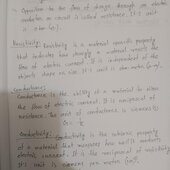 Opposition to the flow of charge, through an electric
conductor or circuit is called resistance. It's unit
is ohm (Ω).
Resistivity: Resistivity is a material specific property
that indicates how strongly a material resists the
flow of electric current. It is independent of the
object's shape or size. It's unit is ohm meter (Ω-m).
Conductance:
The ability of a material to allow
the flow of electric current. It is reciprocal of
resistance. The unit of conductance is siemens (s)
G = 1/R
Conductivity: Conductivity is the intrinsic property
of a material that measures how well it conducts
electric current. It is the reciprocal of resistivity
It's unit is siemens per meter